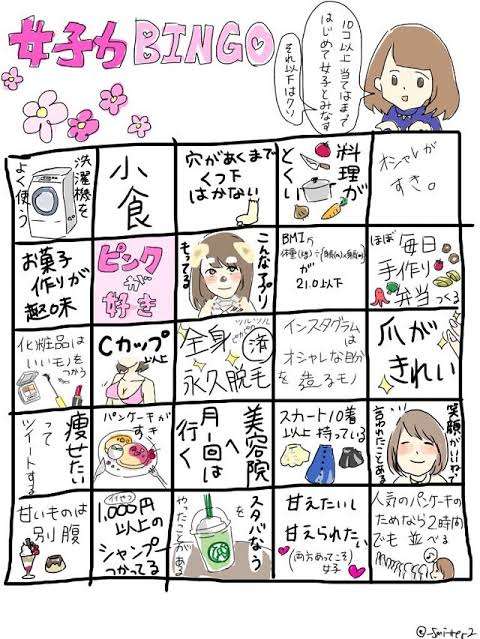 女子力BINGO
10コ以上当てはまで
はじめて女子とみなす
それ以下はクソ
洗濯機を
よく使う
小食
穴があくまで
くつ下
はかない
料理が
とくい
オシャレが
すき。
お菓子
作りが
趣味
ピンク
が
好き
こんなアプリ
もってる
BMIが
体重(kg)÷(身長(m)×身長(m))
が
21.0以下
ほぼ毎日
手作り
弁当つくる
化粧品は
いいモノを
つかう
Cカップ
以上
全身
ツルツル
済
永久脱毛
インスタグラム
は
オシャレな自分
を造るモノ
爪が
きれい
痩せたい
って
ツイートする
パンケーキが
すき
美容院
へ
月一回は
行く
スカート10着
以上持っている
笑顔がいいねって
言われたことある
甘いものは
別腹
1,000円
以上の
シャンプー
つかってる
スタバなう
を
やったことがある
甘えたいし
甘えられたい
(両方あってこそ
女子
人気のパンケーキの
ためなら2時間
でも並べる